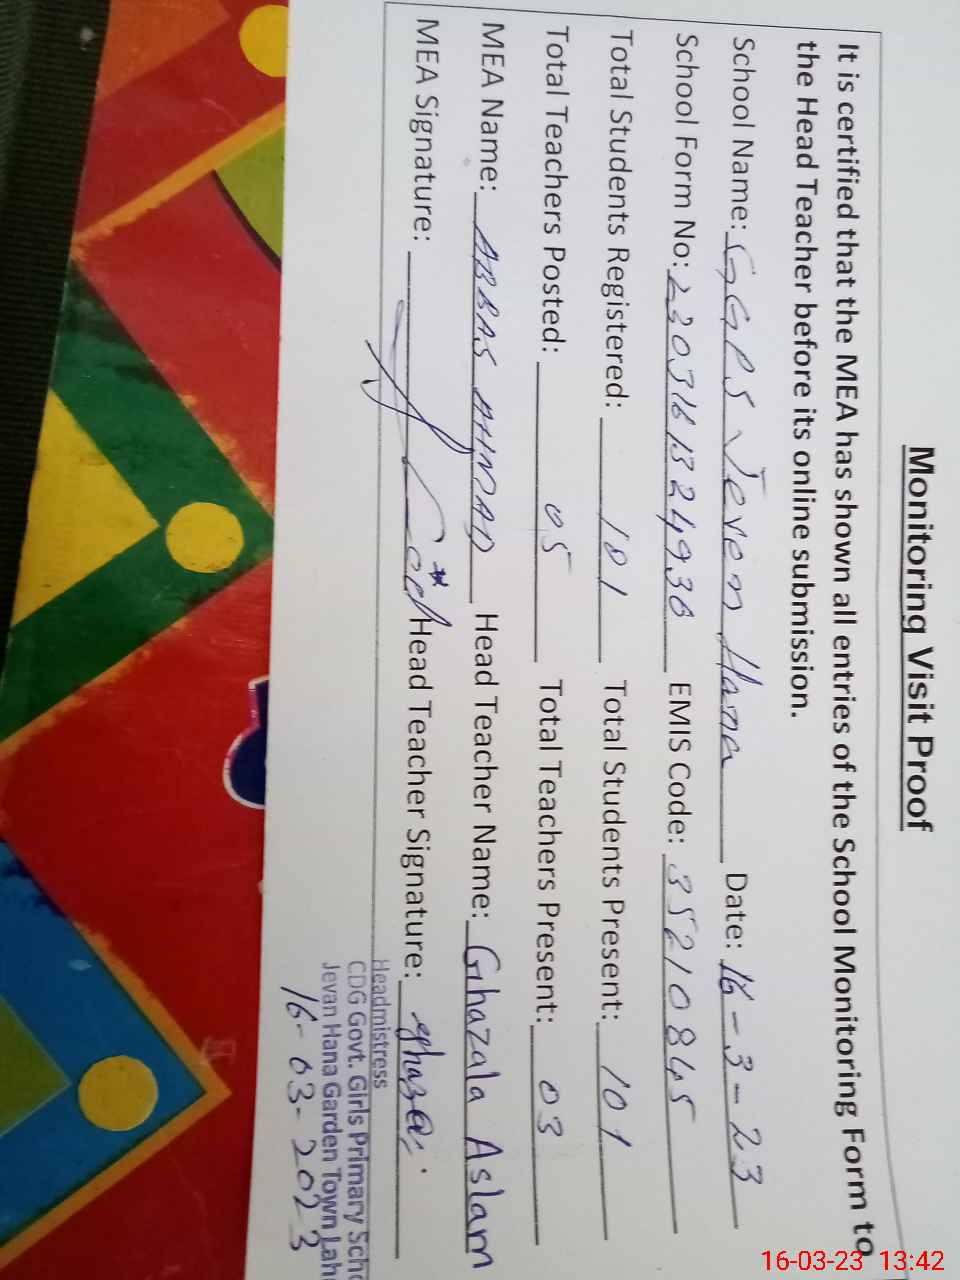 Monitoring Visit Proof
It is certified that the MEA has shown all entries of the School Monitoring Form to
the Head Teacher before its online submission.
School Name: GGPS Jeven Hana Date: 16-3-23
School Form No: 2303161324936 EMIS Code: 35210845
Total Students Registered: 101 Total Students Present: 101
Total Teachers Posted: 05 Total Teachers Present: 03
MEA Name: ABBAS AHMAD Head Teacher Name: Ghazala Aslam
MEA Signature: Head Teacher Signature:
Headmistress
CDG Govt. Girls Primary Scho
Jevan Hana Garden Town Laho
16-03-2023
16-03-23 13:42